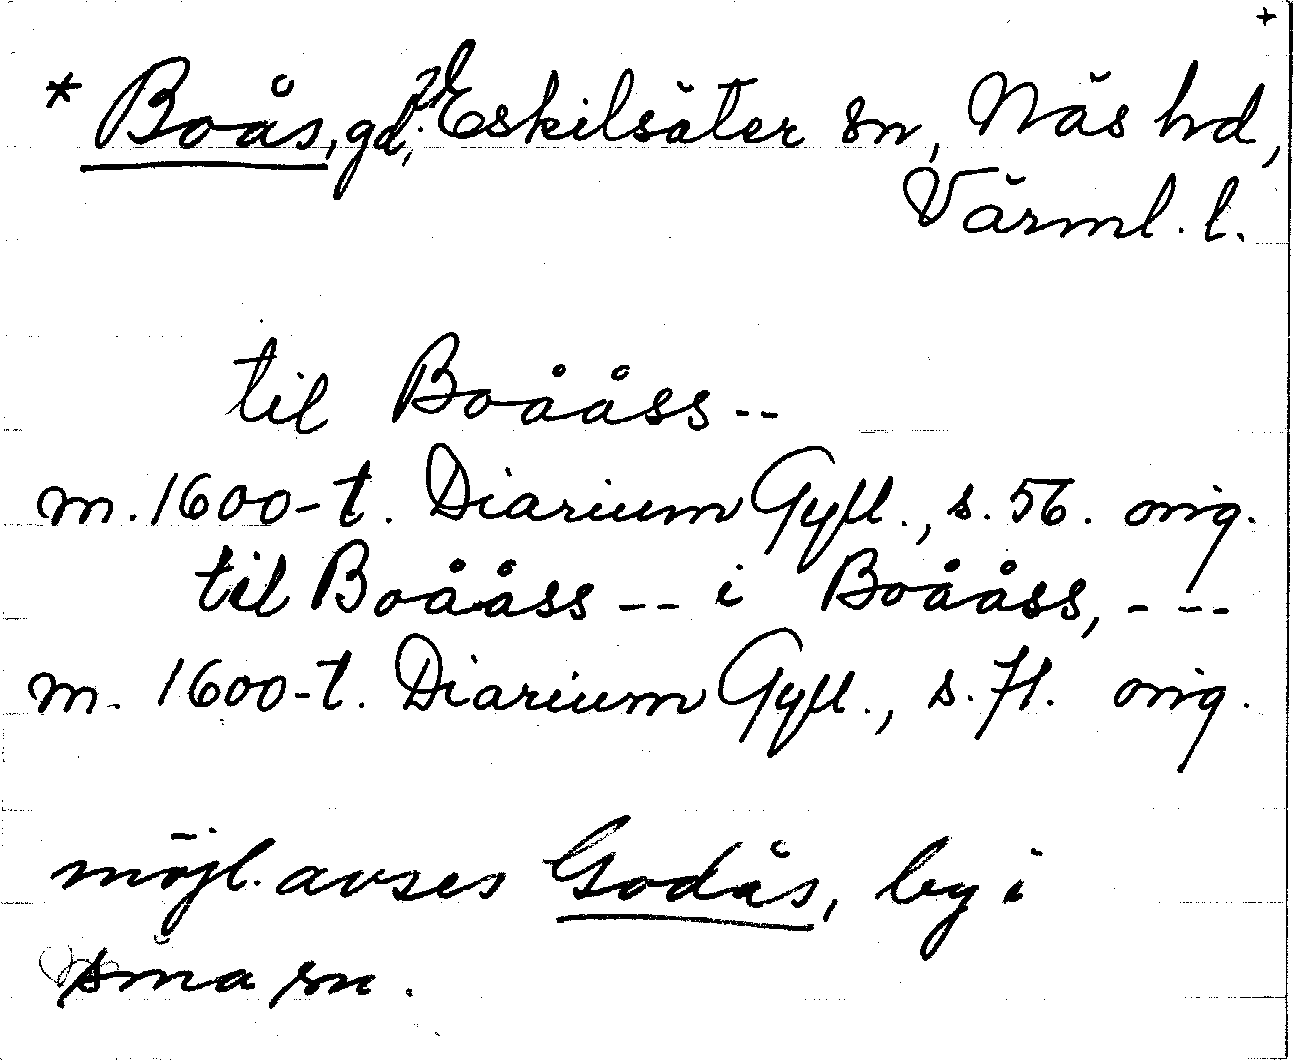 +
* Boås, gd, Eskilsäter sn, Näs hd,
Värml. l.
til Boååss --
m. 1600-t. Diarium Gyll., s. 56. orig.
til Boååss -- i Boååss, ---
m. 1600-t. Diarium Gyll., s. 71. orig.
möjl. avses Godås, by i
sma sn.